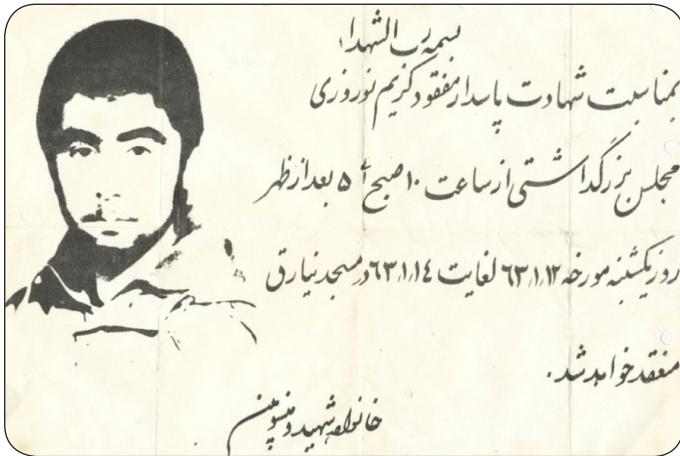 بسمه رب الشهداء
بمناسبت شهادت پاسدار مفقود کریم نوروزی
مجلس بزرگداشتی از ساعت ۱۰ صبح تا ۵ بعد از ظهر
روز یکشنبه مورخه ۶۳،۱،۱۲ لغایت ۶۳،۱،۱٤ در مسجد نیارق
منعقد خواهد شد.
خانواده شهید و منسوبین